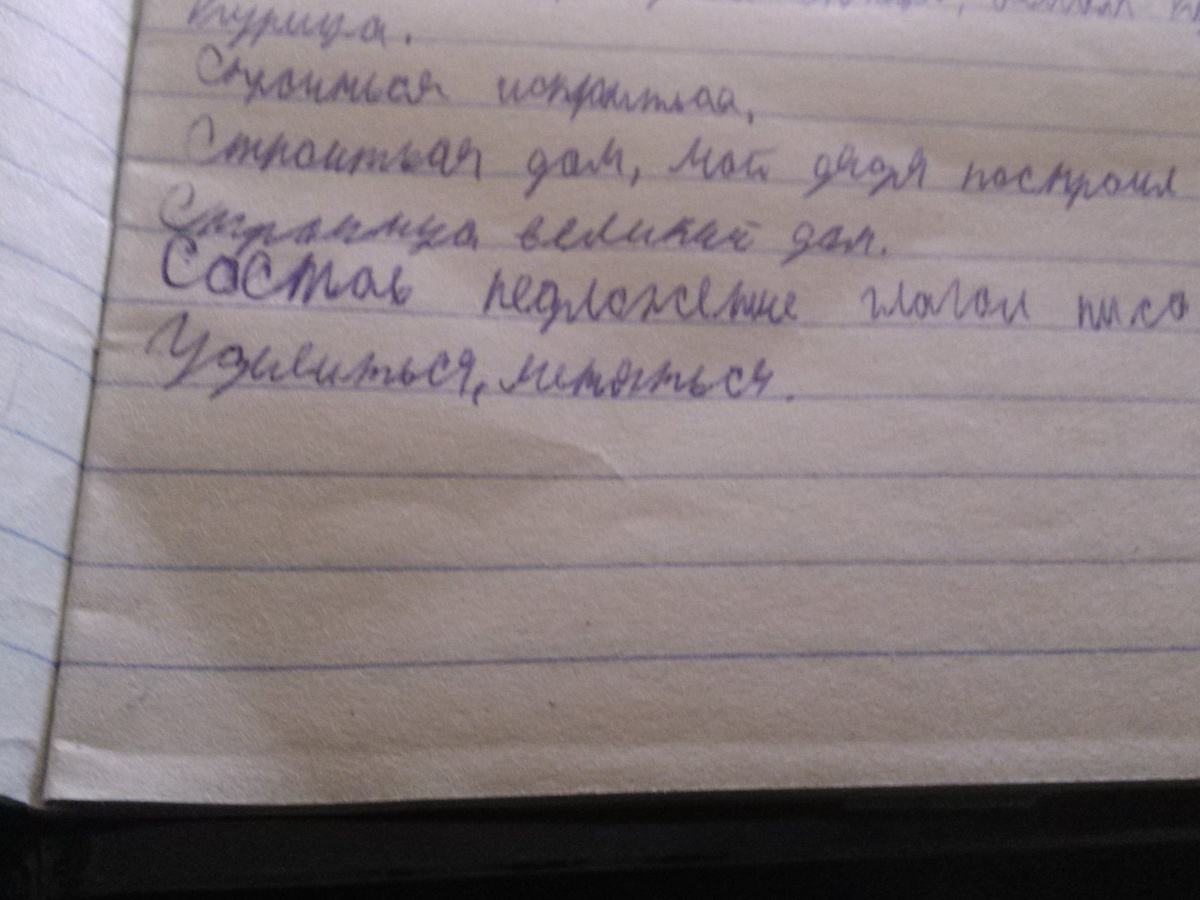 Курица.
Строиться
Строиться дом, мой дядя построил
великий дом.
Состав педложение глагол писа
Удивиться, метаться.